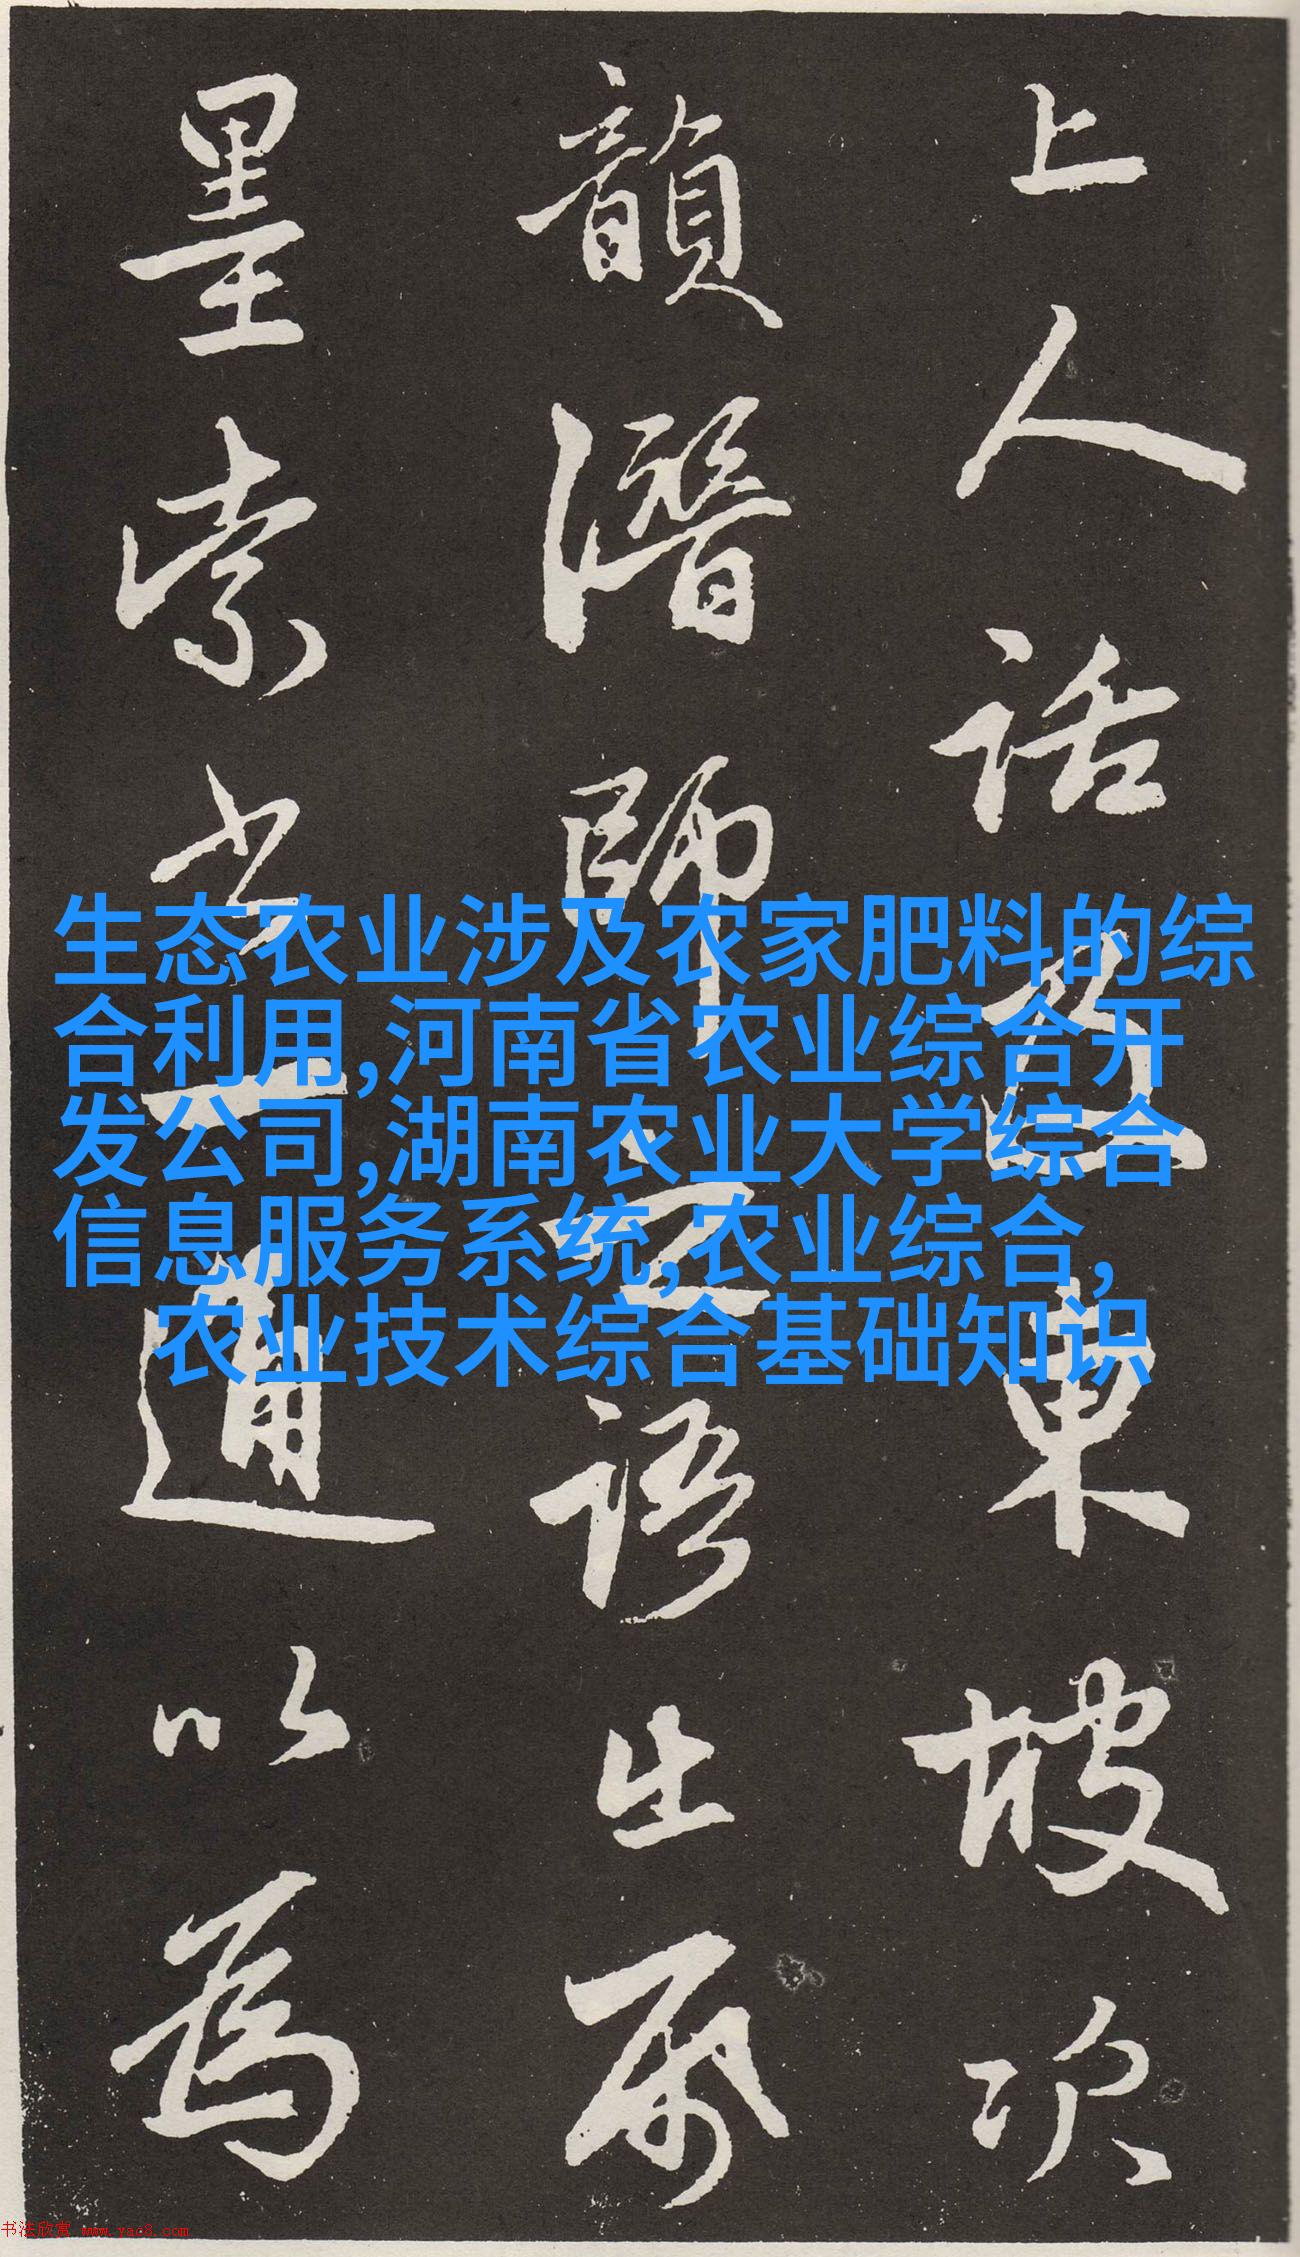 上人話及東坡次
韻潛師語出
墨索書一通以為
生态农业涉及农家肥料的综
合利用,河南省农业综合开
发公司,湖南农业大学综合
信息服务系统,农业综合,
农业技术综合基础知识
书法欣赏 www.yac8.com